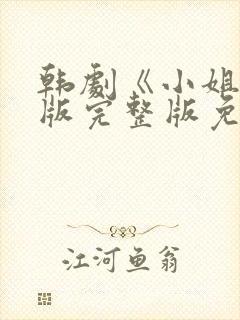 韩劇《小姐
版完整版免
江河鱼翁